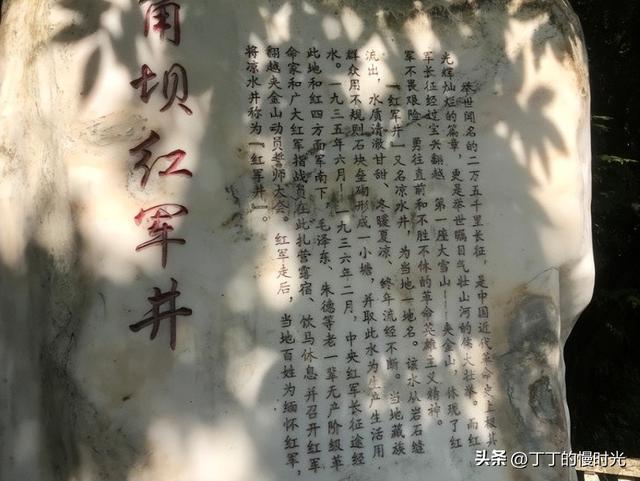 举世闻名的二万五千里长征，是中国近代革命史上极其
光辉灿烂的篇章，更是举世瞩目气壮山河的伟大壮举。而红
军长征经过宝兴翻越第一座大雪山——夹金山，体现了红
军不畏艰险、勇往直前和不胜不休的革命英雄主义精神。
『红军井』又名凉水井，为当地一地名。该水从岩石缝
流出，水质清澈甘甜、冬暖夏凉、终年流经不断。当地藏族
群众用不规则石块垒砌形成一小塘，并取此水为生产生活用
水。一九三五年六月——一九三六年二月，中央红军长征途经
此地和红四方面军南下，毛泽东、朱德等老一辈无产阶级革
命家和广大红军指战员在此扎营露宿、饮马休息并召开红军
翻越夹金山动员誓师大会。红军走后，当地百姓为缅怀红军，
将凉水井称为『红军井』。
坝红军井
头条 @丁丁的慢时光